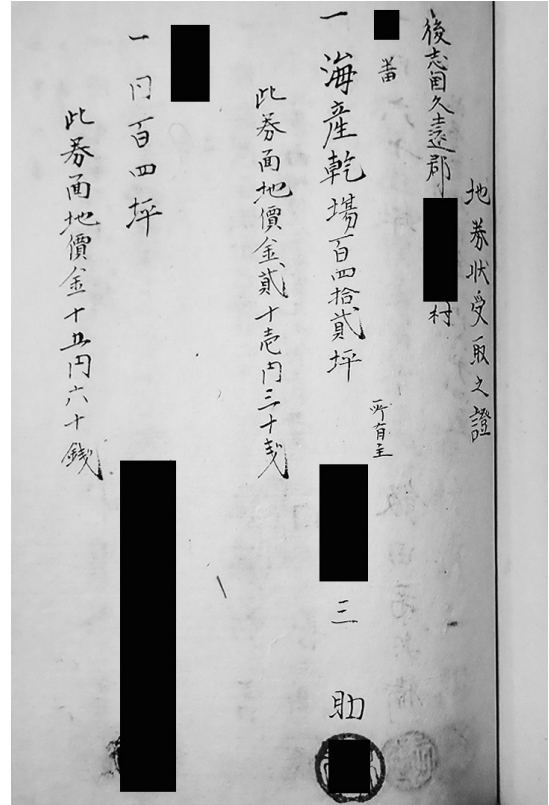 地券状受取之證
後志国久遠郡
村
番
所有主
一 海産乾場百四拾貳坪
三助
此券面地價金貳十壱円三十戋
一 同百四坪
此券面地價金十五円六十錢